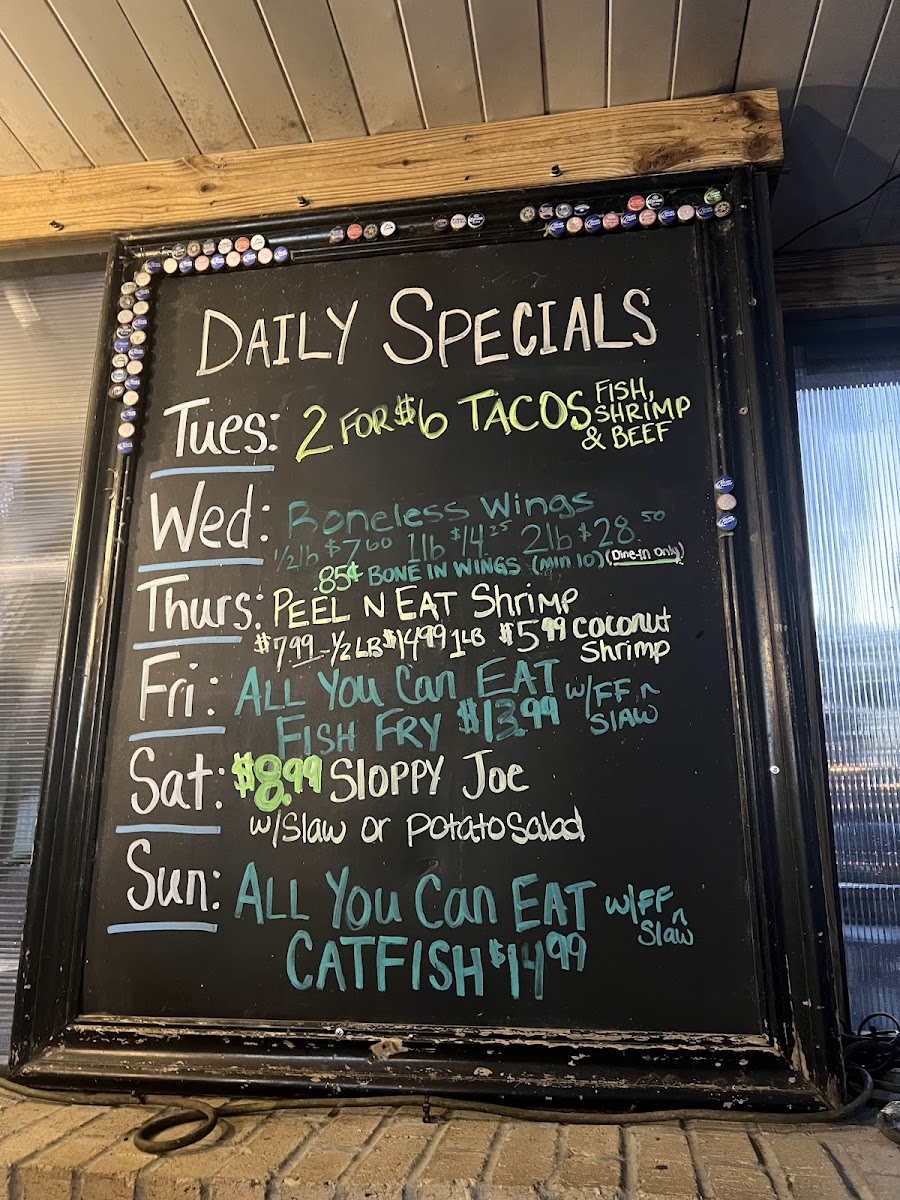 DAILY SPECIALS
Tues: 2 FOR $6 TACOS FISH, SHRIMP & BEEF
Wed: Boneless Wings
1/2lb $7.60 1lb $14.25 2lb $28.50
.85¢ BONE IN WINGS (min 10) (Dine-in Only)
Thurs: PEEL N EAT Shrimp
$7.99 - 1/2 LB $14.99 1LB $5.99 coconut Shrimp
Fri: ALL You Can EAT
FISH FRY $13.99 w/FF n SLAW
Sat: $8.99 SLOPPY JOE
w/Slaw or Potato Salad
Sun: ALL You Can EAT w/FF n Slaw
CATFISH $14.99